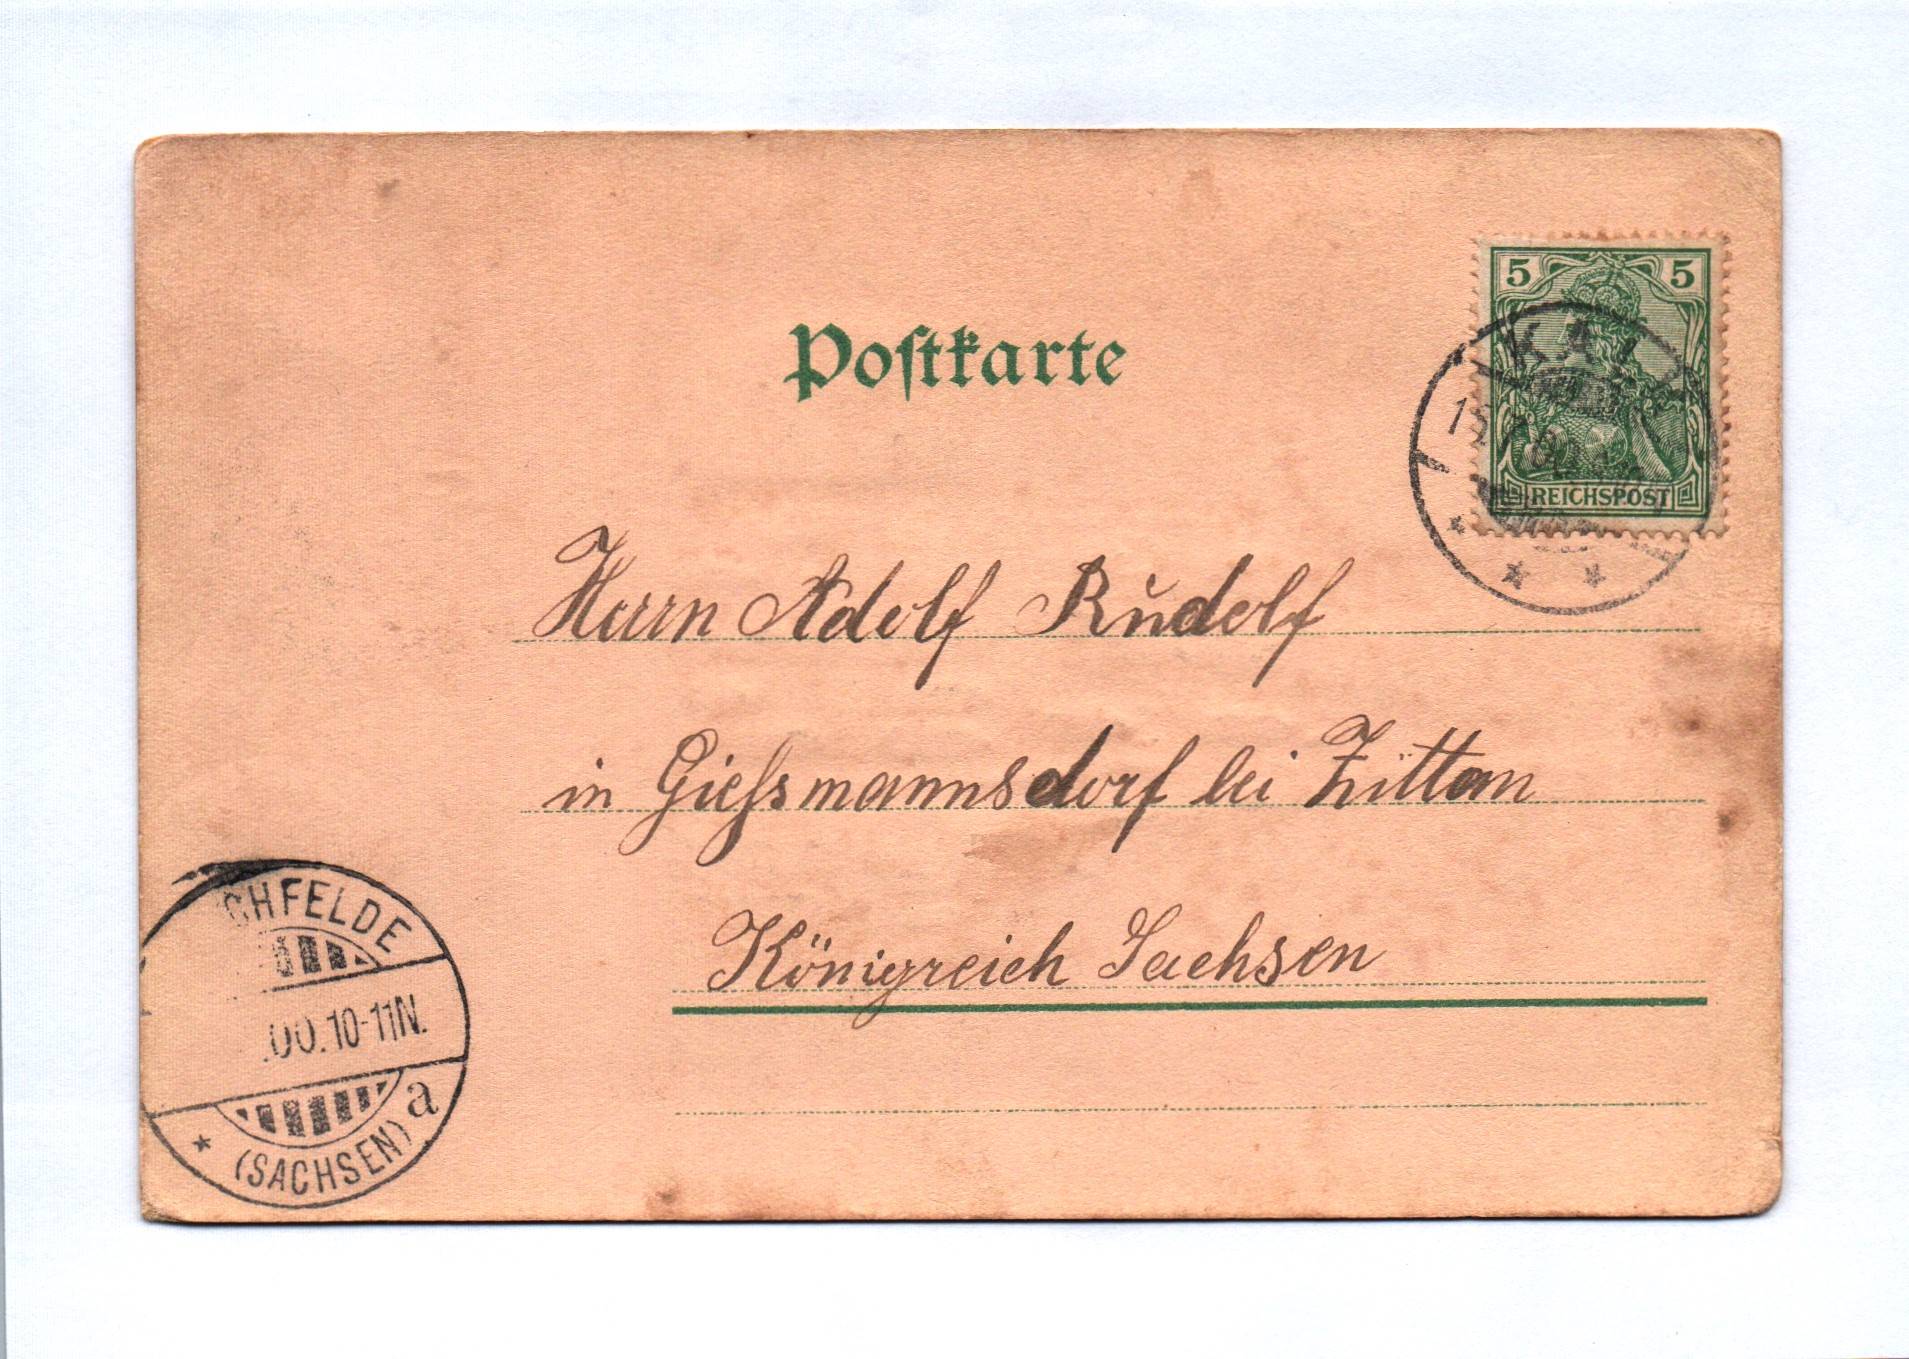 Postkarte
5 5
KA
REICHSPOST
Herrn Adolf Rudolf
in Giessmannsdorf bei Zittau
Königreich Sachsen
CHFELDE
.00.10-11N.
a
(SACHSEN)